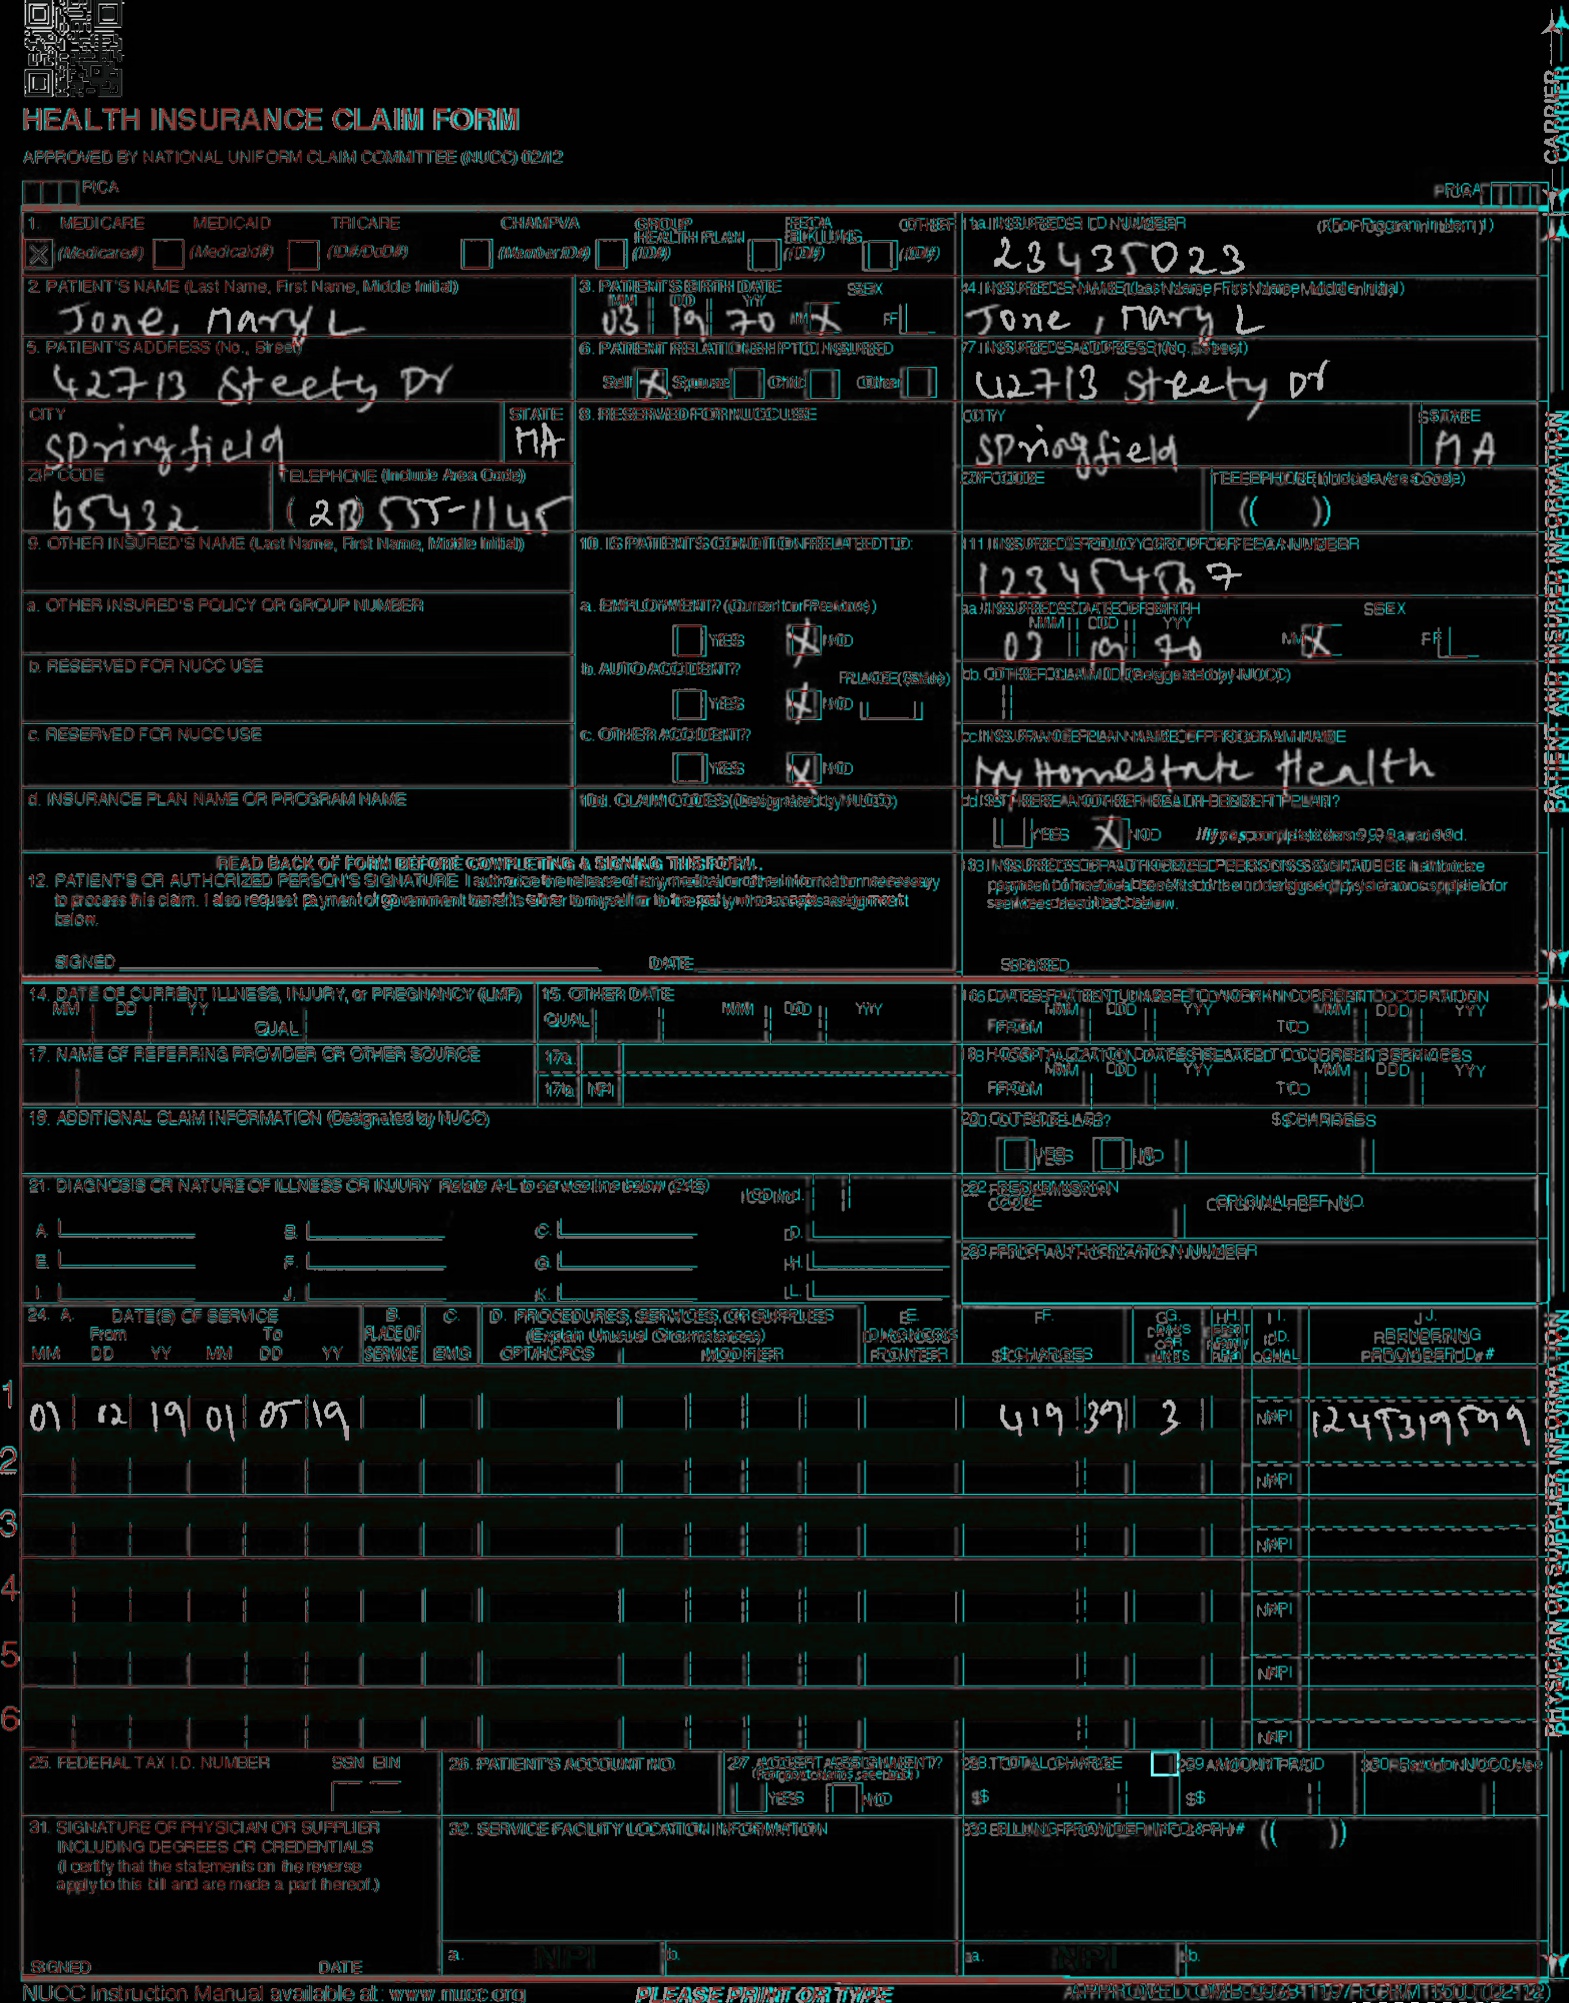 HEALTH INSURANCE CLAIM FORM
APPROVED BY NATIONAL UNIFORM CLAIM COMMITTEE (NUCC) 02/12
PICA
PICA
CARRIER
1. MEDICARE MEDICAID TRICARE CHAMPVA GROUP HEALTH PLAN FECA BLK LUNG OTHER
X (Medicare#) (Medicaid#) (ID#/DoD#) (Member ID#) (ID#) (ID#) (ID#)
1a. INSURED'S I.D. NUMBER (For Program in Item 1)
23435023
2. PATIENT'S NAME (Last Name, First Name, Middle Initial)
Jone, Mary L
3. PATIENT'S BIRTH DATE SEX
MM DD YY
03 19 70 M X F
4. INSURED'S NAME (Last Name, First Name, Middle Initial)
Jone, Mary L
5. PATIENT'S ADDRESS (No., Street)
42713 Steety Dr
6. PATIENT RELATIONSHIP TO INSURED
Self X Spouse Child Other
7. INSURED'S ADDRESS (No., Street)
42713 Steety Dr
CITY STATE
Springfield MA
8. RESERVED FOR NUCC USE
CITY STATE
Springfield MA
ZIP CODE TELEPHONE (Include Area Code)
65432 (213) 555-1145
ZIP CODE TELEPHONE (Include Area Code)
( )
9. OTHER INSURED'S NAME (Last Name, First Name, Middle Initial)
10. IS PATIENT'S CONDITION RELATED TO:
11. INSURED'S POLICY GROUP OR FECA NUMBER
a. OTHER INSURED'S POLICY OR GROUP NUMBER
a. EMPLOYMENT? (Current or Previous)
YES X NO
a. INSURED'S DATE OF BIRTH SEX
MM DD YY
03 19 70 M X F
b. RESERVED FOR NUCC USE
b. AUTO ACCIDENT? PLACE (State)
YES X NO
b. OTHER CLAIM ID (Designated by NUCC)
c. RESERVED FOR NUCC USE
c. OTHER ACCIDENT?
YES X NO
c. INSURANCE PLAN NAME OR PROGRAM NAME
My Homestate Health
d. INSURANCE PLAN NAME OR PROGRAM NAME
10d. CLAIM CODES (Designated by NUCC)
d. IS THERE ANOTHER HEALTH BENEFIT PLAN?
YES X NO If yes, complete items 9, 9a, and 9d.
READ BACK OF FORM BEFORE COMPLETING & SIGNING THIS FORM.
12. PATIENT'S OR AUTHORIZED PERSON'S SIGNATURE I authorize the release of any medical or other information necessary
to process this claim. I also request payment of government benefits either to myself or to the party who accepts assignment
below.
SIGNED DATE
13. INSURED'S OR AUTHORIZED PERSON'S SIGNATURE I authorize
payment of medical benefits to the undersigned physician or supplier for
services described below.
SIGNED
PATIENT AND INSURED INFORMATION
14. DATE OF CURRENT ILLNESS, INJURY, or PREGNANCY (LMP)
MM DD YY QUAL.
15. OTHER DATE
QUAL. MM DD YY
16. DATES PATIENT UNABLE TO WORK IN CURRENT OCCUPATION
MM DD YY MM DD YY
FROM TO
17. NAME OF REFERRING PROVIDER OR OTHER SOURCE
17a.
17b. NPI
18. HOSPITALIZATION DATES RELATED TO CURRENT SERVICES
MM DD YY MM DD YY
FROM TO
19. ADDITIONAL CLAIM INFORMATION (Designated by NUCC)
20. OUTSIDE LAB? $ CHARGES
YES NO
21. DIAGNOSIS OR NATURE OF ILLNESS OR INJURY Relate A-L to service line below (24E) ICD Ind.
A. B. C. D.
E. F. G. H.
I. J. K. L.
22. RESUBMISSION CODE ORIGINAL REF. NO.
23. PRIOR AUTHORIZATION NUMBER
24. A. DATE(S) OF SERVICE B. C. D. PROCEDURES, SERVICES, OR SUPPLIES E. F. G. H. I. J.
From To PLACE OF (Explain Unusual Circumstances) DIAGNOSIS DAYS OR EPSDT Family ID. RENDERING
MM DD YY MM DD YY SERVICE EMG CPT/HCPCS MODIFIER POINTER $ CHARGES UNITS Plan QUAL. PROVIDER ID. #
1 01 02 19 01 05 19 419 39 3 NPI 1245319599
2 NPI
3 NPI
4 NPI
5 NPI
6 NPI
25. FEDERAL TAX I.D. NUMBER SSN EIN
26. PATIENT'S ACCOUNT NO.
27. ACCEPT ASSIGNMENT?
(For govt. claims, see back)
YES NO
28. TOTAL CHARGE
$
29. AMOUNT PAID
$
30. Rsvd for NUCC Use
31. SIGNATURE OF PHYSICIAN OR SUPPLIER
INCLUDING DEGREES OR CREDENTIALS
(I certify that the statements on the reverse
apply to this bill and are made a part thereof.)
SIGNED DATE
32. SERVICE FACILITY LOCATION INFORMATION
a. NPI b.
33. BILLING PROVIDER INFO & PH # ( )
a. NPI b.
PHYSICIAN OR SUPPLIER INFORMATION
NUCC Instruction Manual available at: www.nucc.org
PLEASE PRINT OR TYPE